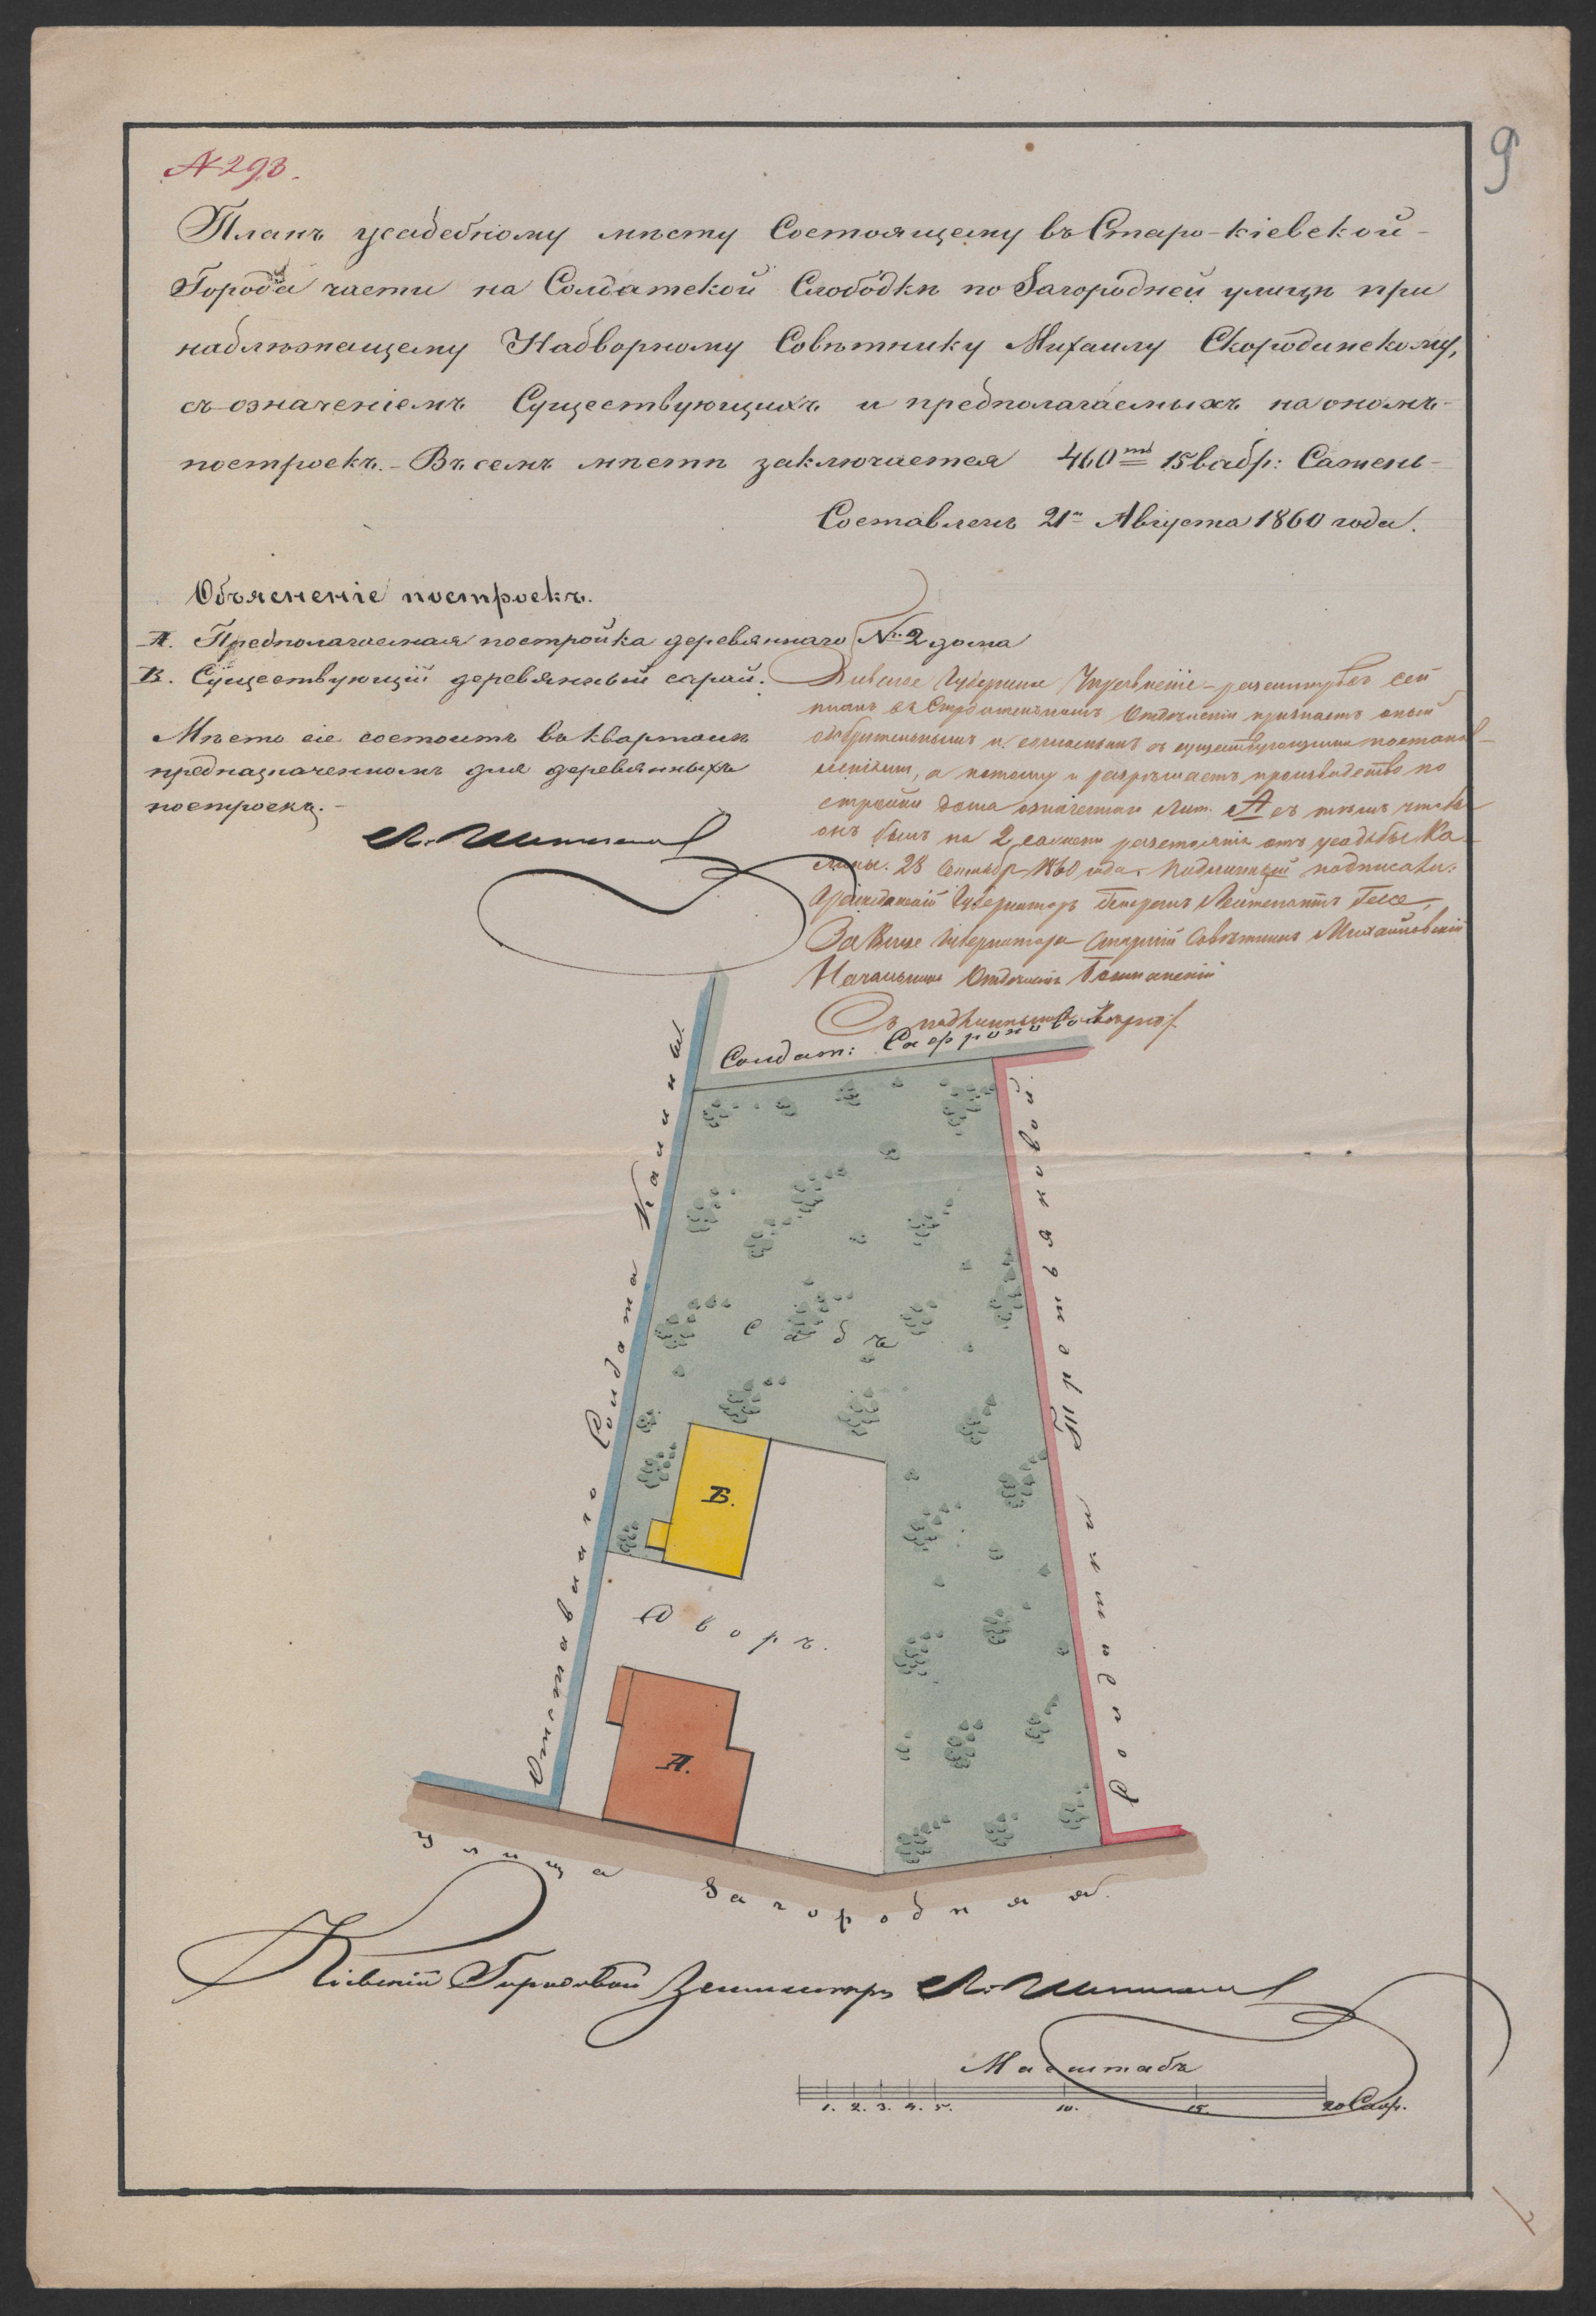 № 293.
9
Планъ усадебному мѣсту Состоящему въ Старо-кіевской
Города части на Солдатской Слободкѣ по Загородней улицѣ при
наблѣжащему Надворному Совѣтнику Михаилу Скородинскому,
съ означеніемъ Существующихъ и предполагаемыхъ на ономъ
построекъ. – Въ семъ мѣстѣ заключается 460 15 Сажень
Составленъ 21 Августа 1860 года.
Объясненіе построекъ.
А. Предполагаемая постройка деревяннаго № 2 дома
В. Существующій деревянный сарай.
Мѣсто сіе состоитъ въ кварталѣ
предназначенномъ для деревянныхъ
построекъ. –
Губернское Правленіе – разсмотрѣвъ сей
планъ въ Строительномъ Отдѣленіи признаетъ оный
и согласнымъ съ существующими постанов-
леніями, а потому и разрѣшаетъ производство по
стройки дома означеннаго Лит. А съ тѣмъ чтобы
онъ былъ на 2 сажени разстоянія отъ усадьбы Ка-
лины. 28 Сентября 1860 года. Подлинный подписали:
Гражданскій Губернаторъ Генералъ Лейтенантъ Гессе,
За Вице Губернатора Старшій Совѣтникъ Михайловскій
Начальникъ Отдѣленія
Съ подлиннымъ вѣрно:
Солдат: Сафронова
Отставнаго Солдата Калины.
Садъ
В.
Дворъ.
А.
Третьяковой.
Солдатки
Улица Загородная.
Кіевскій Городовой Землемѣръ
Масштабъ
1. 2. 3. 4. 5. 10. 15. 20 Саж.